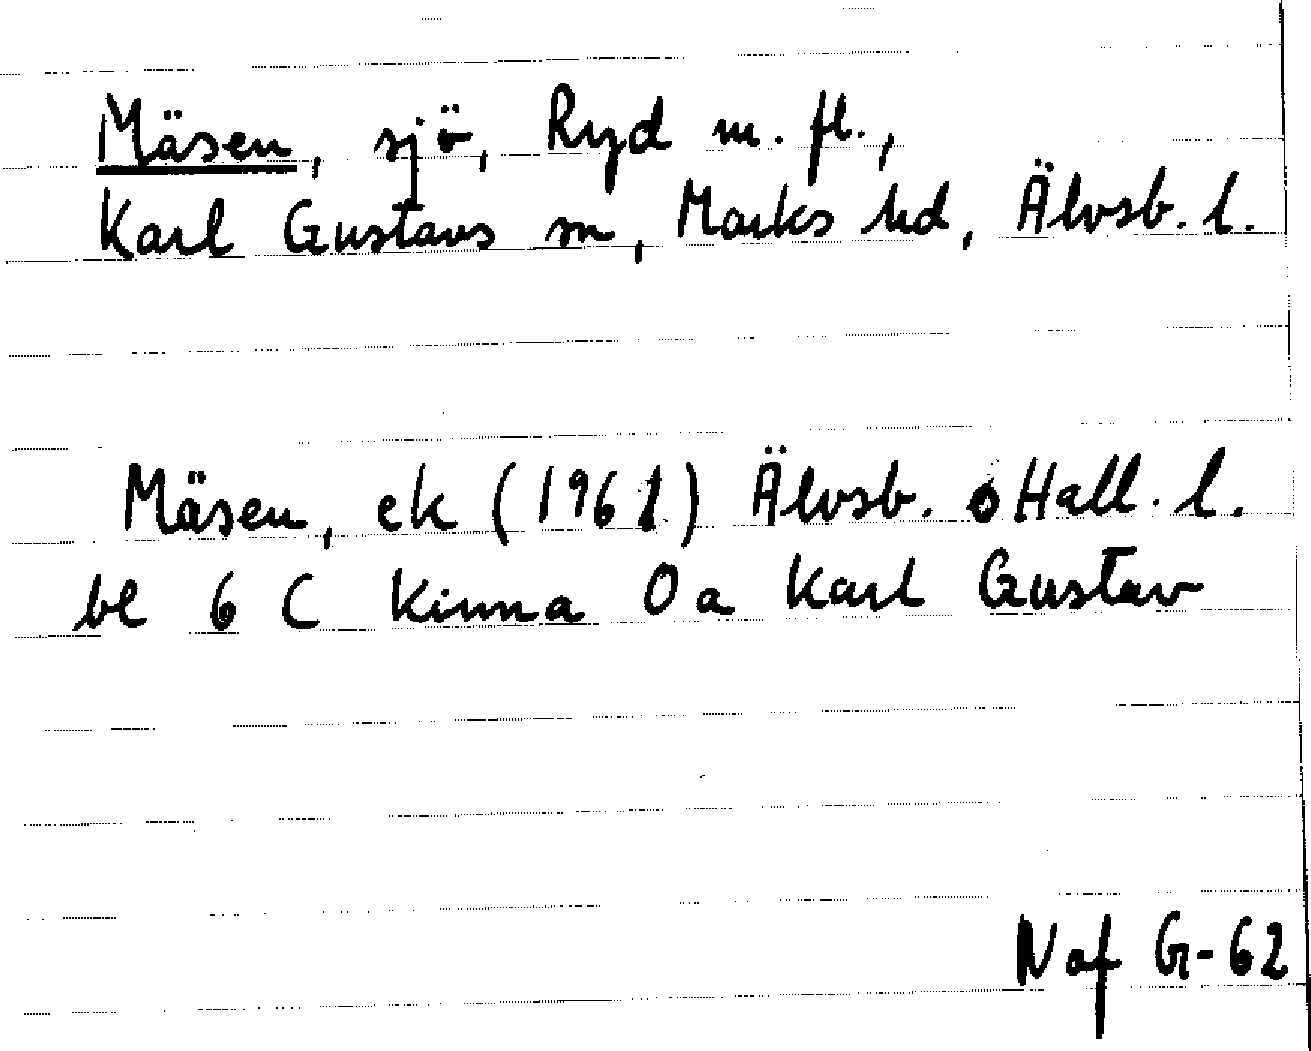 Mäsen, sjö, Ryd m. fl.,
Karl Gustavs sn, Marks hd, Älvsb. l.
Mäsen, ek (1961) Älvsb. o Hall. l.
bl 6 C Kinna 0 a Karl Gustav
N af G-62